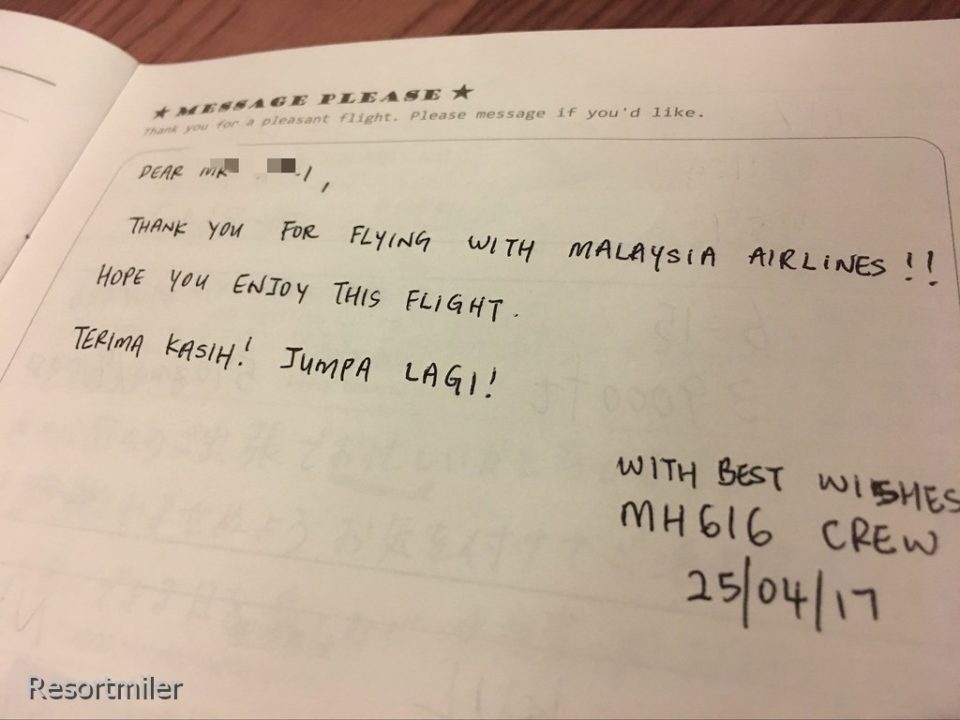 ★ MESSAGE PLEASE ★
Thank you for a pleasant flight. Please message if you'd like.
DEAR MR
THANK YOU FOR FLYING WITH MALAYSIA AIRLINES !!
HOPE YOU ENJOY THIS FLIGHT.
TERIMA KASIH! JUMPA LAGI!
WITH BEST WISHES
MH616 CREW
25/04/17
Resortmiler